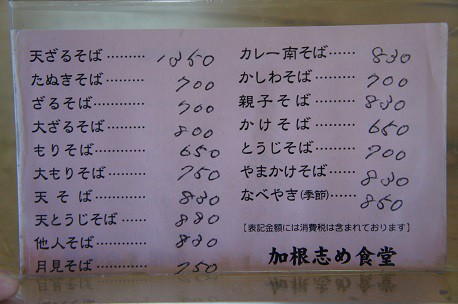 天ざるそば………1350
たぬきそば………700
ざるそば…………700
大ざるそば………800
もりそば…………650
大もりそば………750
天そば……830
天とうじそば……880
他人そば…………830
月見そば…………750
カレー南そば……830
かしわそば………700
親子そば……830
かけそば……650
とうじそば………700
やまかけそば……830
なべやき(季節)……850
【表記金額には消費税は含まれております】
加根志め食堂